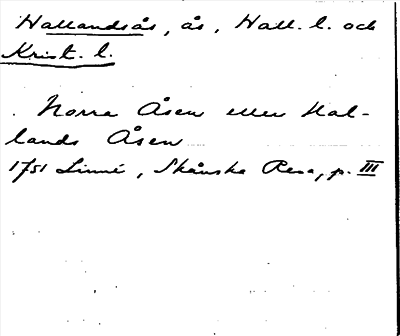 Hallandsås, ås, Hall. l. och
Krist. l.
Norra Åsen eller Hal-
lands Åsen
1751 Linné, Skånska Resa, p. III